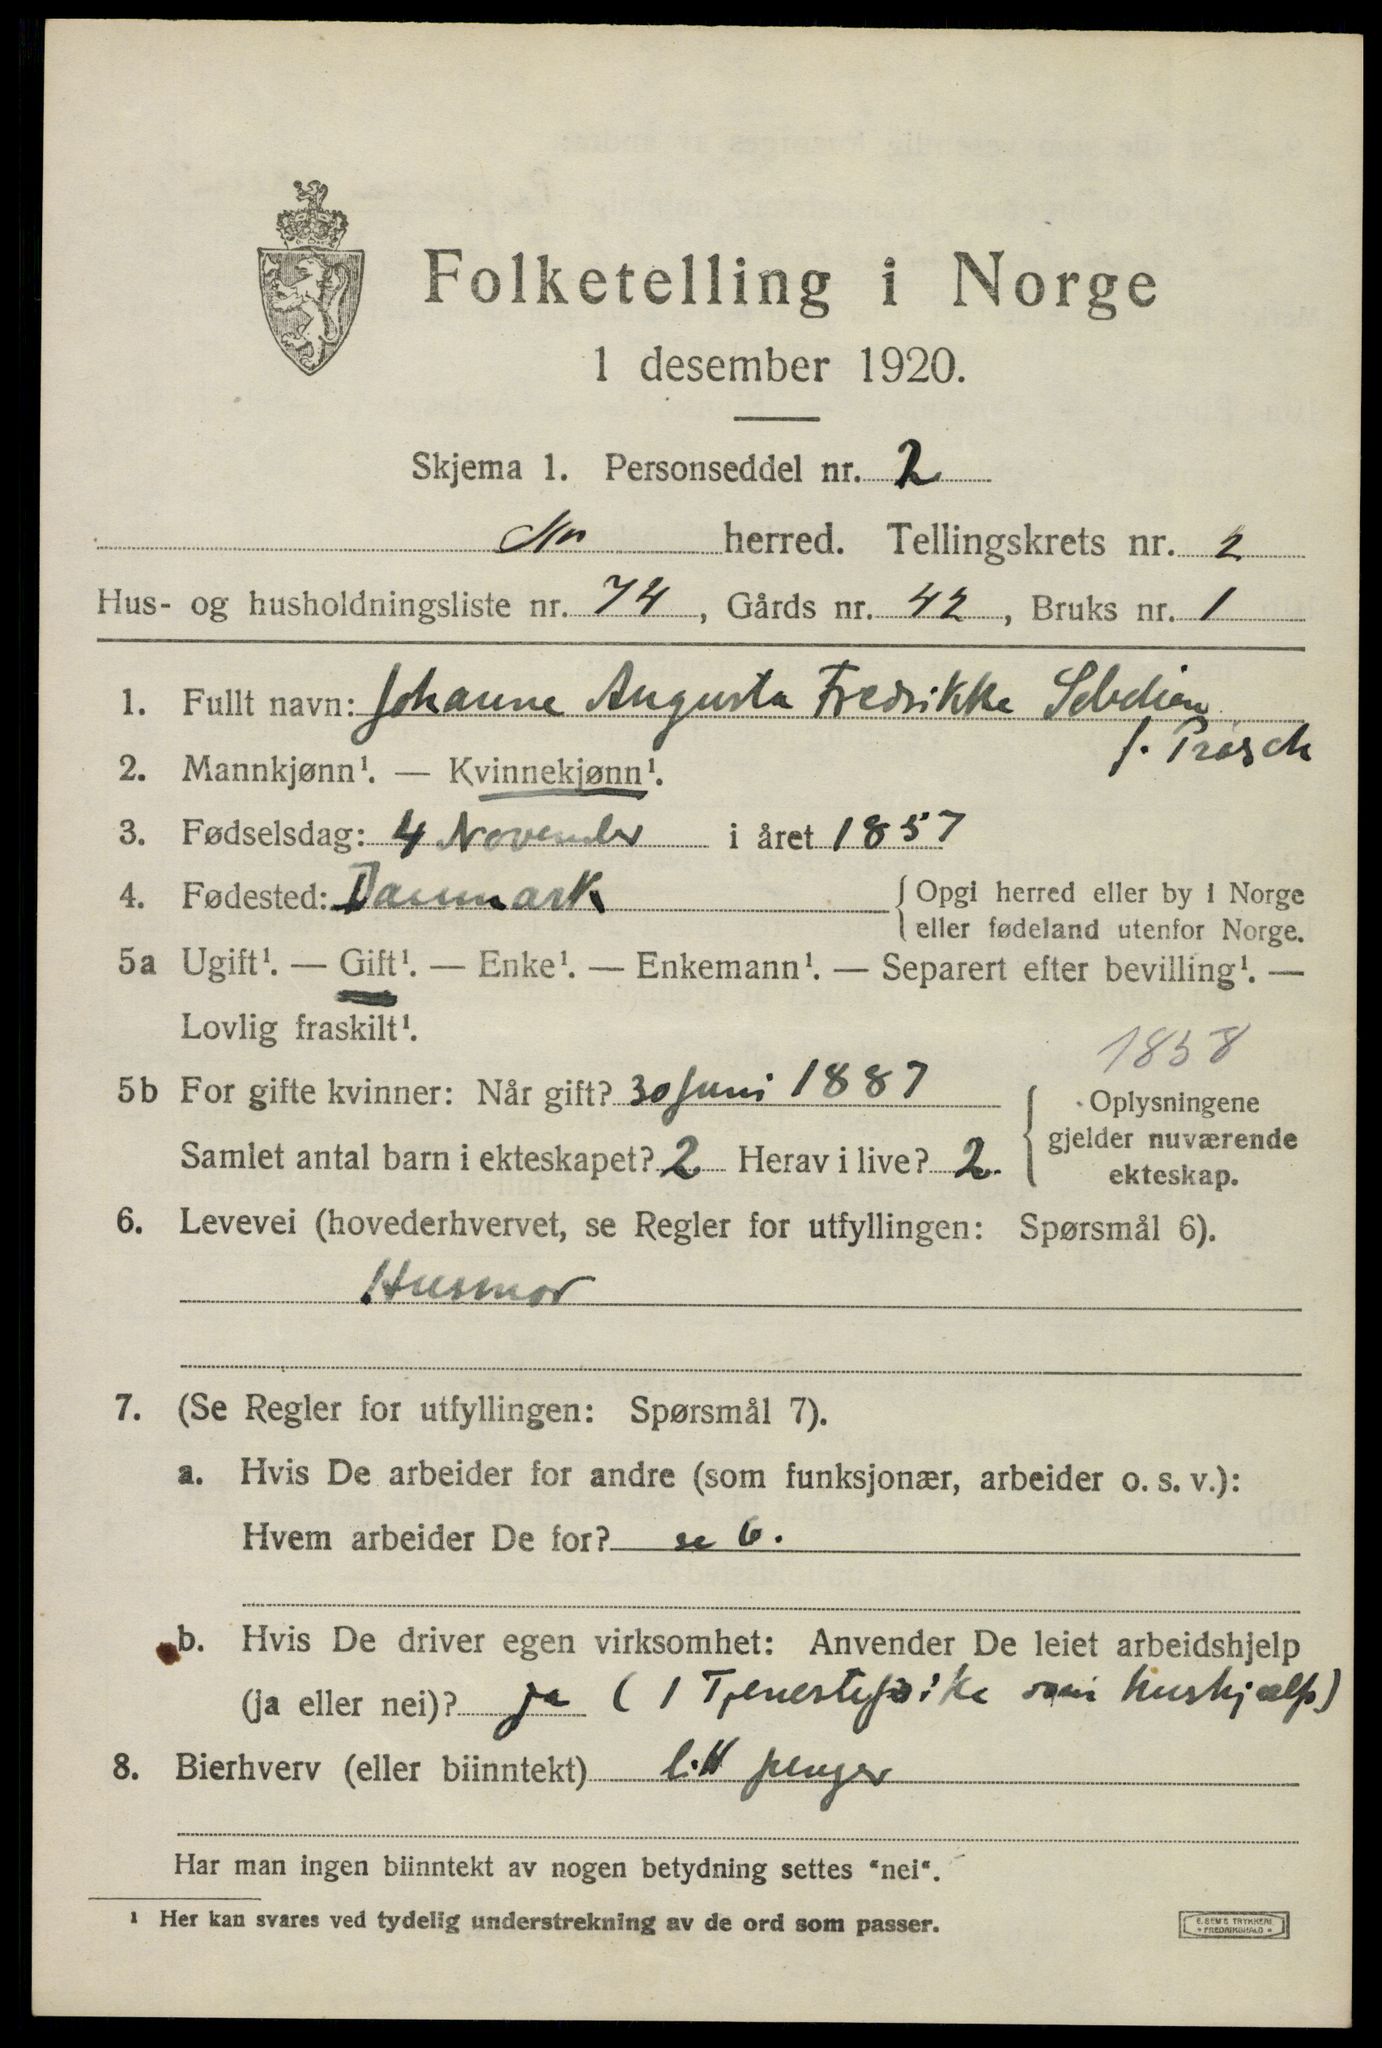 Folketelling i Norge
1 desember 1920.
Skjema 1. Personseddel nr. 2
herred. Tellingskrets nr. 2
Hus- og husholdningsliste nr. 74, Gårds nr. 42, Bruks nr. 1
1. Fullt navn: Johanne Augusta Fredrikke Sebelien
f. Prösch
2. Mannkjønn¹. — Kvinnekjønn¹.
3. Fødselsdag: 4 November i året 1857
4. Fødested: Danmark { Opgi herred eller by i Norge
eller fødeland utenfor Norge.
5a Ugift¹. — Gift¹. — Enke¹. — Enkemann¹. — Separert efter bevilling¹. —
Lovlig fraskilt¹.
1858
5b For gifte kvinner: Når gift? 30 Juni 1887
Samlet antal barn i ekteskapet? 2 Herav i live? 2
Oplysningene
gjelder nuværende
ekteskap.
6. Levevei (hovederhvervet, se Regler for utfyllingen: Spørsmål 6).
Husmor
7. (Se Regler for utfyllingen: Spørsmål 7).
a. Hvis De arbeider for andre (som funksjonær, arbeider o. s. v.):
Hvem arbeider De for? se 6.
b. Hvis De driver egen virksomhet: Anvender De leiet arbeidshjelp
(ja eller nei)? ja (1 Tjenestepike som hushjælp)
8. Bierhverv (eller biinntekt) litt penger
Har man ingen biinntekt av nogen betydning settes "nei".
¹ Her kan svares ved tydelig understrekning av de ord som passer.
E. SEM'S TRYKKERI
FREDRIKSHALD